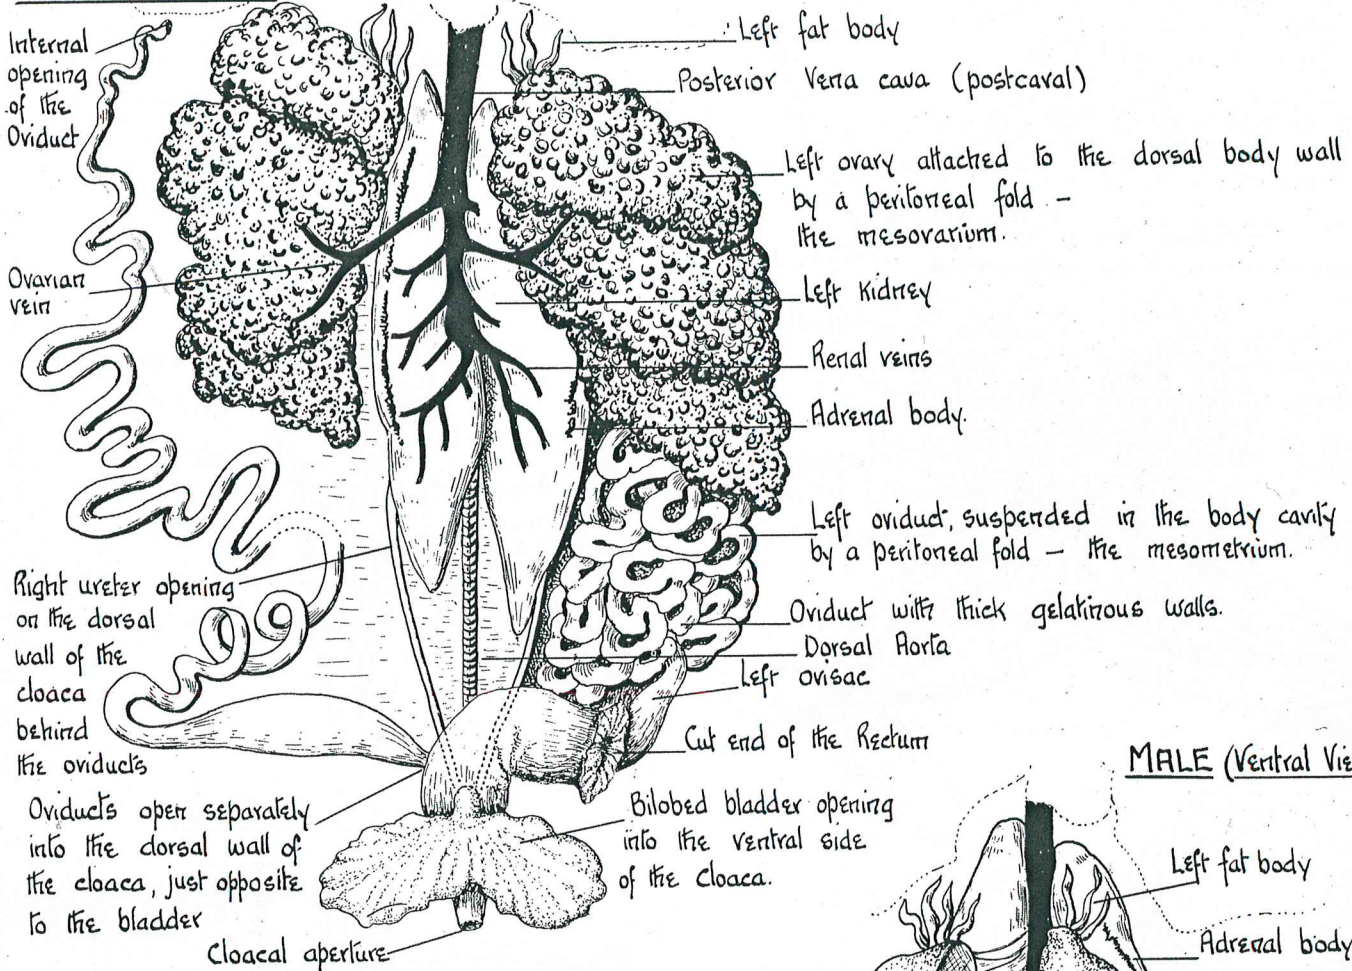 Internal
opening
of the
Oviduct
Ovarian
vein
Right ureter opening
on the dorsal
wall of the
cloaca
behind
the oviducts
Oviducts open separately
into the dorsal wall of
the cloaca, just opposite
to the bladder
Cloacal aperture
Left fat body
Posterior Vena cava (postcaval)
Left ovary attached to the dorsal body wall
by a peritoneal fold -
the mesovarium.
Left Kidney
Renal veins
Adrenal body.
Left oviduct, suspended in the body cavity
by a peritoneal fold - the mesometrium.
Oviduct with thick gelatinous walls.
Dorsal Aorta
Left ovisac
Cut end of the Rectum
Bilobed bladder opening
into the ventral side
of the cloaca.
MALE (Ventral Vie
Left fat body
Adrenal body